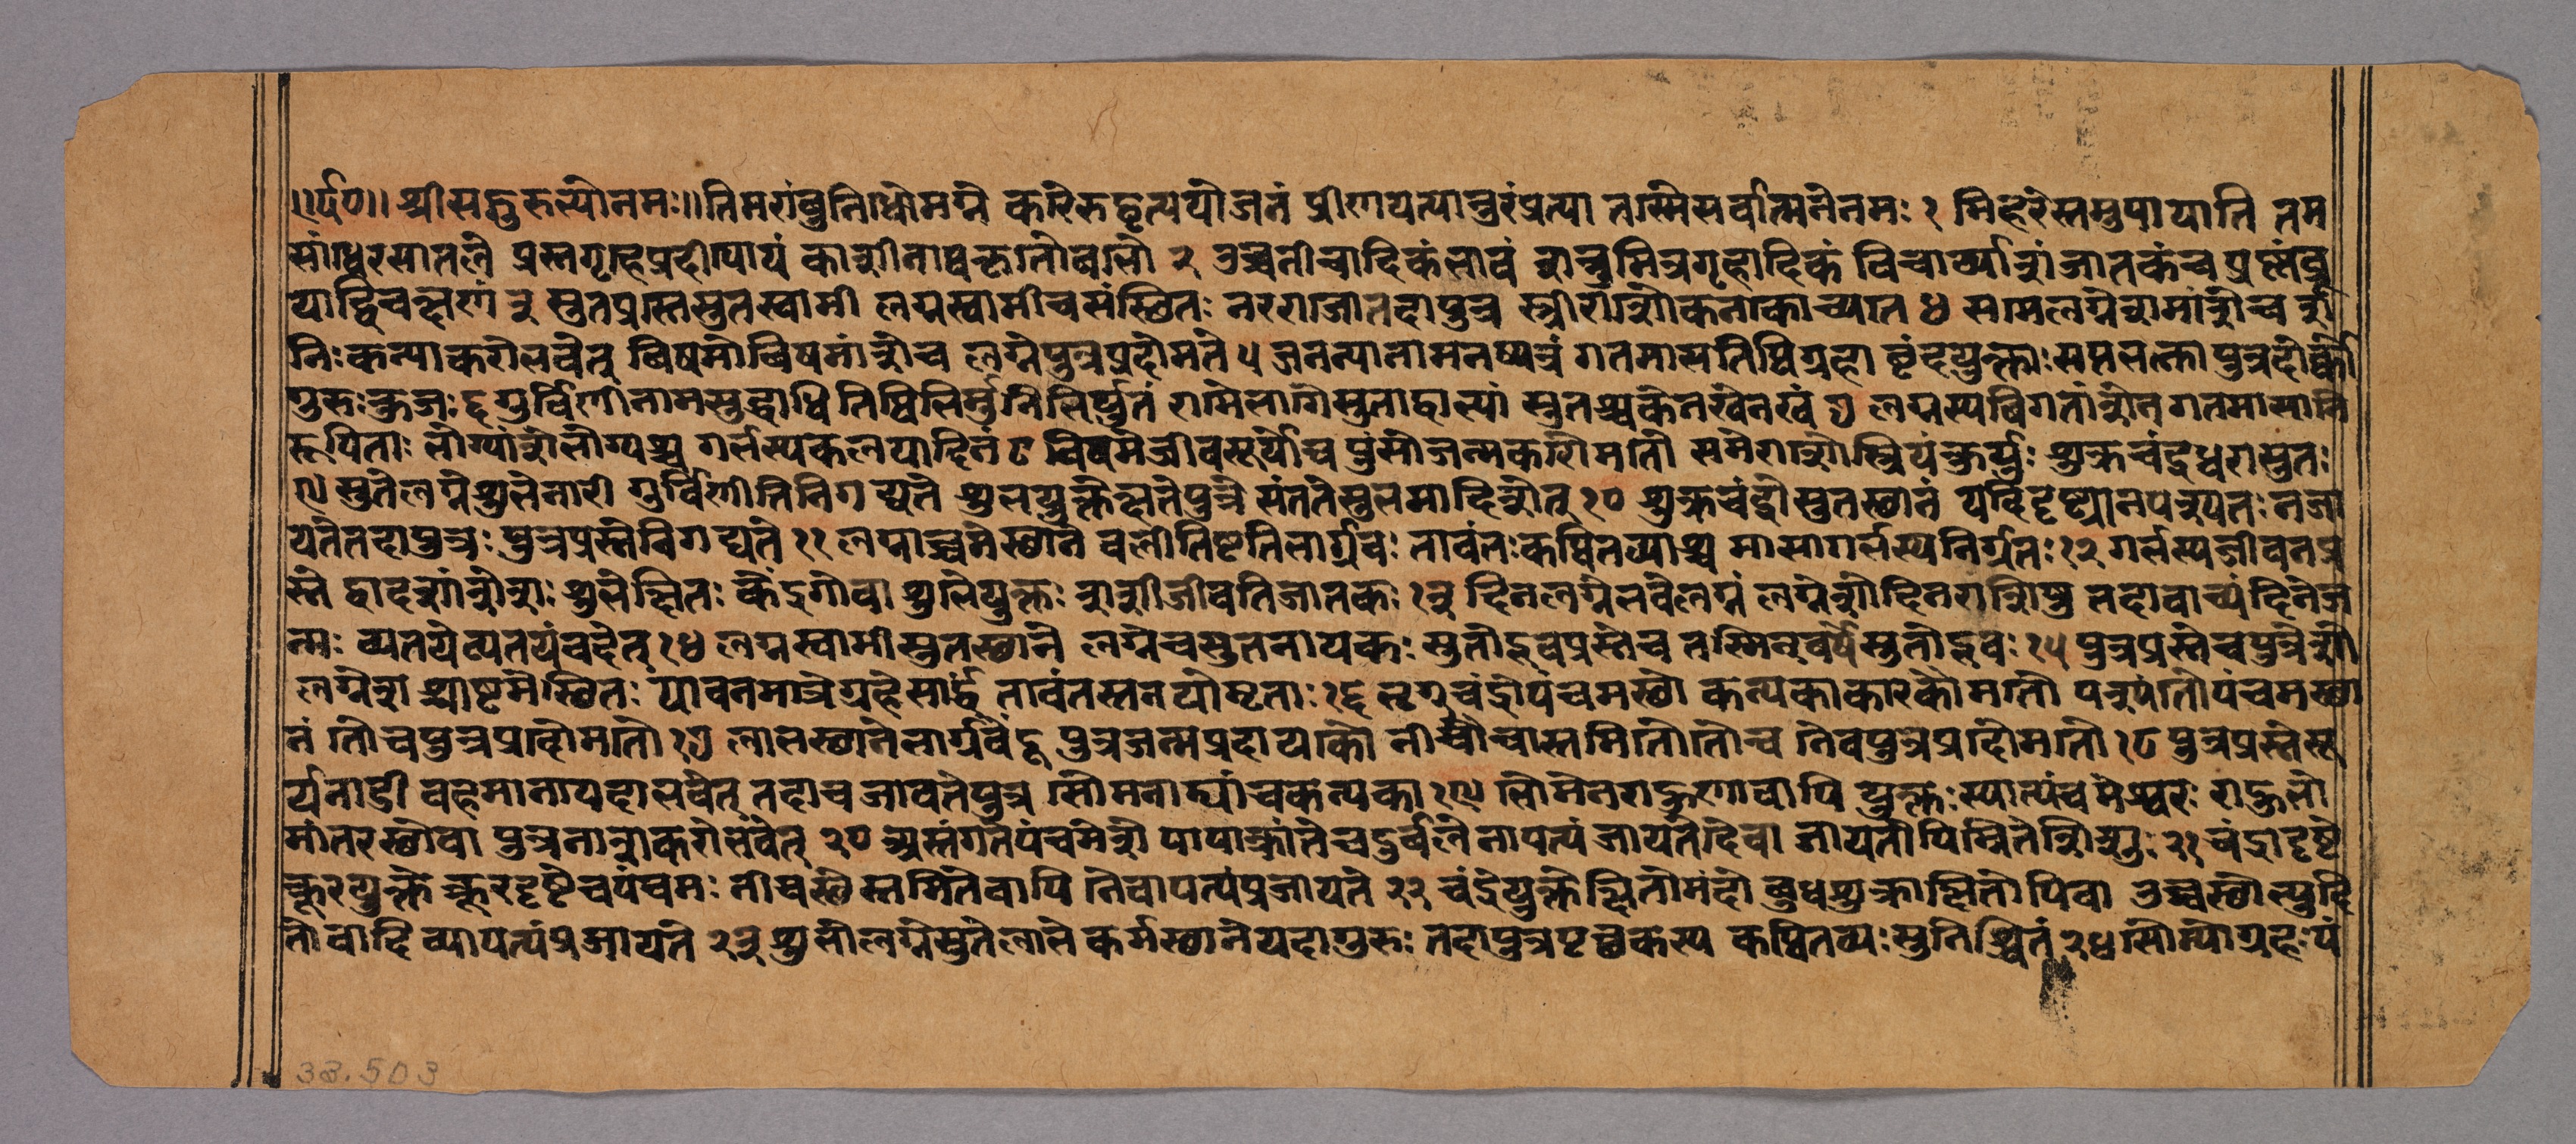 ॥र्द०॥ श्रीसद्गुरुभ्योनमः॥तिमरांबुनिधोमग्ने करैरुद्धृत्ययोजनं प्रीणयत्यानुरंप्रत्या तस्मैसर्वात्मनेनमः १ मिहरेस्तमुपायाति तम
सांधिरसातले प्रस्नगृहप्रदीपायं काशीनाथकृतौबभौ २ उच्चनीचादिकंभावं शत्रुमित्रगृहादिकं विचार्य्यांशंजातकंच प्रष्नंब्रू
याद्विचक्षणं ३ सुतप्रस्नसुतस्वामी लग्नस्वामीचसंस्थितः नरराशौतदापुत्र स्त्रीराशौकनाकाच्यात ४ समलग्नेशमांशेच श
निःकन्याकरोभवेत् विषमोविषमांशेच लग्नेपुत्रप्रदोमते ५ जनन्यानामनष्यत्रं गतमासतिथिग्रहा ष्टंदयुक्ताःसप्तभक्ता पुत्रदोर्की
गुरुःकुजः ६ गुर्विणीनामसुद्धाधि तिथिभिर्मुनिभिर्युतं रामैभागेसुताद्वाभ्यां सुतश्चकेनखेनखं ७ लग्नस्यविगतांशेन गतमासानि
रूपिताः भोग्यांशेभोग्यश्च गर्भस्यकलयादिनं ८ विषमेजीवसूर्यौच पुंसोजन्मकरौमतौ समेराशौस्त्रियंकुर्युः शुक्रचंद्रधरासुतः
९ सुतेलग्नेशुभेनारी गुर्विणीतिनिगद्यते शुभयुक्तेक्षतेपुत्रे संततेसुभमादिशेत् १० शुक्रचंद्रौसुतस्थानं यदिदृष्ट्यानपश्यतः नजा
यतेतदापुत्रः पुत्रप्रस्नेनिगद्यते ११ लग्नाच्चमेस्थाने बलीतिष्टतिभार्ग्रवः तावंतःकथितव्याश्च मासागर्भस्यनिर्ग्रतः १२ गर्भस्यजीवनप्र
स्ने द्वादशांशेशः शुभेक्षितः केंद्रगोवा शुभैयुक्तः शशीजीवतिजातकः १३ दिनलग्नेभवेलग्नं लग्नेशोदिनराशिषु तदावाच्यंदिनेज
न्मः व्यतयेव्यतयंवदेत् १४ लग्नस्वामीसुतस्थाने लग्नेचसुतनायकः सुतोद्भवप्रस्नेच तस्मिन्वर्षेसुतोद्भवः १५ पुत्रप्रस्नेचपुत्रेशे
लग्नेशश्चाष्टमेस्थितः यावनमात्रेग्रहेसार्द्धं तावंतस्तनयोमृताः १६ भृगुचंद्रौपंचमस्थौ कन्यकाकारकौमतौ पश्यंतौपंचमस्था
नं तौचपुत्रप्रदौमतौ १७ लाभस्थानेभार्गवेंदू पुत्रजन्मप्रदायकौ नीचौचास्तमितौतौच नैवपुत्रप्रदौमतौ १८ पुत्रप्रस्नेसू
र्यनाडी वहमानायदाभवेत् तदाच जायतेपुत्र सोमनाड्यांचकन्यका १९ भौमेनराहुणावापि युक्तःस्यात्पंचमेश्वरः राहुभौ
मांतरस्थोवा पुत्रनाशकरोभवेत् २० अस्तंगतेपंचमेशे पापाक्रांतेचदुर्बले नापत्यंजायतेदेवा जायतोपिम्रितेशिशुः २१ चंद्रादृष्टे
क्रूरयुक्ते क्रूरदृष्टेचपंचमः नीचस्थेस्तमितेवापि नैवापत्यंप्रजायते २२ चंद्रेयुक्तेक्षितोमंदो बुधशुक्राक्षितोपिवा उच्चस्थोभ्युदि
तोवादि व्यापत्यंप्रजायते २३ शुभोलग्नेसुतेलाभे कर्मस्थानेयदागुरुः तदापुत्रपृच्छकस्य कथितव्यःसुनिश्चितं २४ सौम्योग्रहःपं
33.503